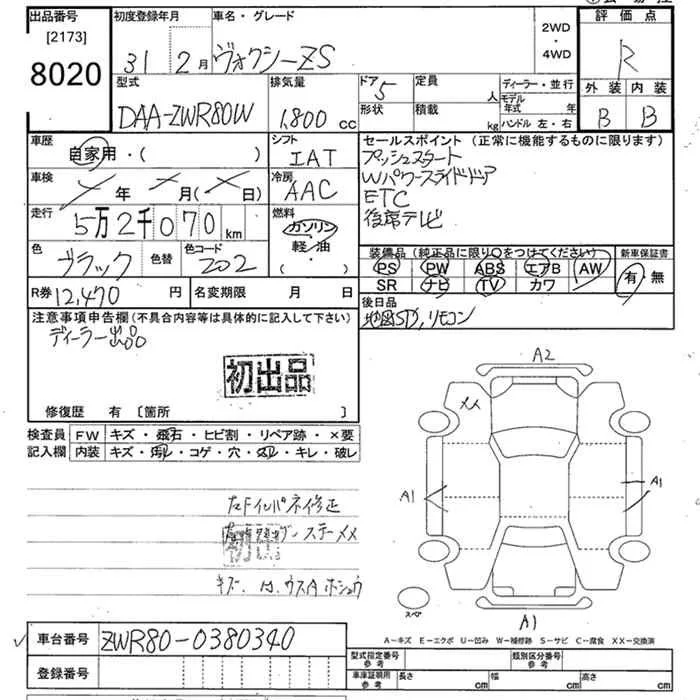 出品番号
[2173]
8020
初度登録年月
31 2月
車名・グレード
ヴォクシーZS
2WD
・
4WD
評価点
R
型式
DAA-ZWR80W
排気量
1,800 cc
ドア
5
定員
人
形状
積載
kg
ディーラー・並行
モデル
年式 年
ハンドル 左・右
外装 内装
B B
車歴
自家用・( )
シフト
IAT
セールスポイント(正常に機能するものに限ります)
プッシュスタート
Wパワースライドドア
ETC
後席テレビ
車検
年 月( 日)
冷房
AAC
走行
5万2千070km
燃料
ガソリン
軽・油
・( )
色
ブラック
色替
色コード
202
装備品(純正品に限り○をつけてください)
PS PW ABS エアB AW
SR ナビ TV カワ
新車保証書
有・無
R券 12,470 円
名変期限 月 日
後日品
地図SD,リモコン
注意事項申告欄(不具合内容等は具体的に記入して下さい)
ディーラー出品
初出品
修復歴 有 [箇所 ]
検査員
記入欄
FW キズ・飛石・ヒビ割・リペア跡・×要
内装 キズ・汚レ・コゲ・穴・スレ・キレ・破レ
左Fインパネ修正
ステーメメ
初出
キズ、凹、ウスA ホシュウ
A2
メメ
A1
A1
A1
スペア
A-キズ E-エクボ U-凹み W-補修跡 S-サビ C-腐食 XX-交換済
車台番号
ZWR80-0380340
登録番号
型式指定番号
参考
類別区分番号
参考
車庫証明用
参考
長さ cm
幅 cm
高さ cm